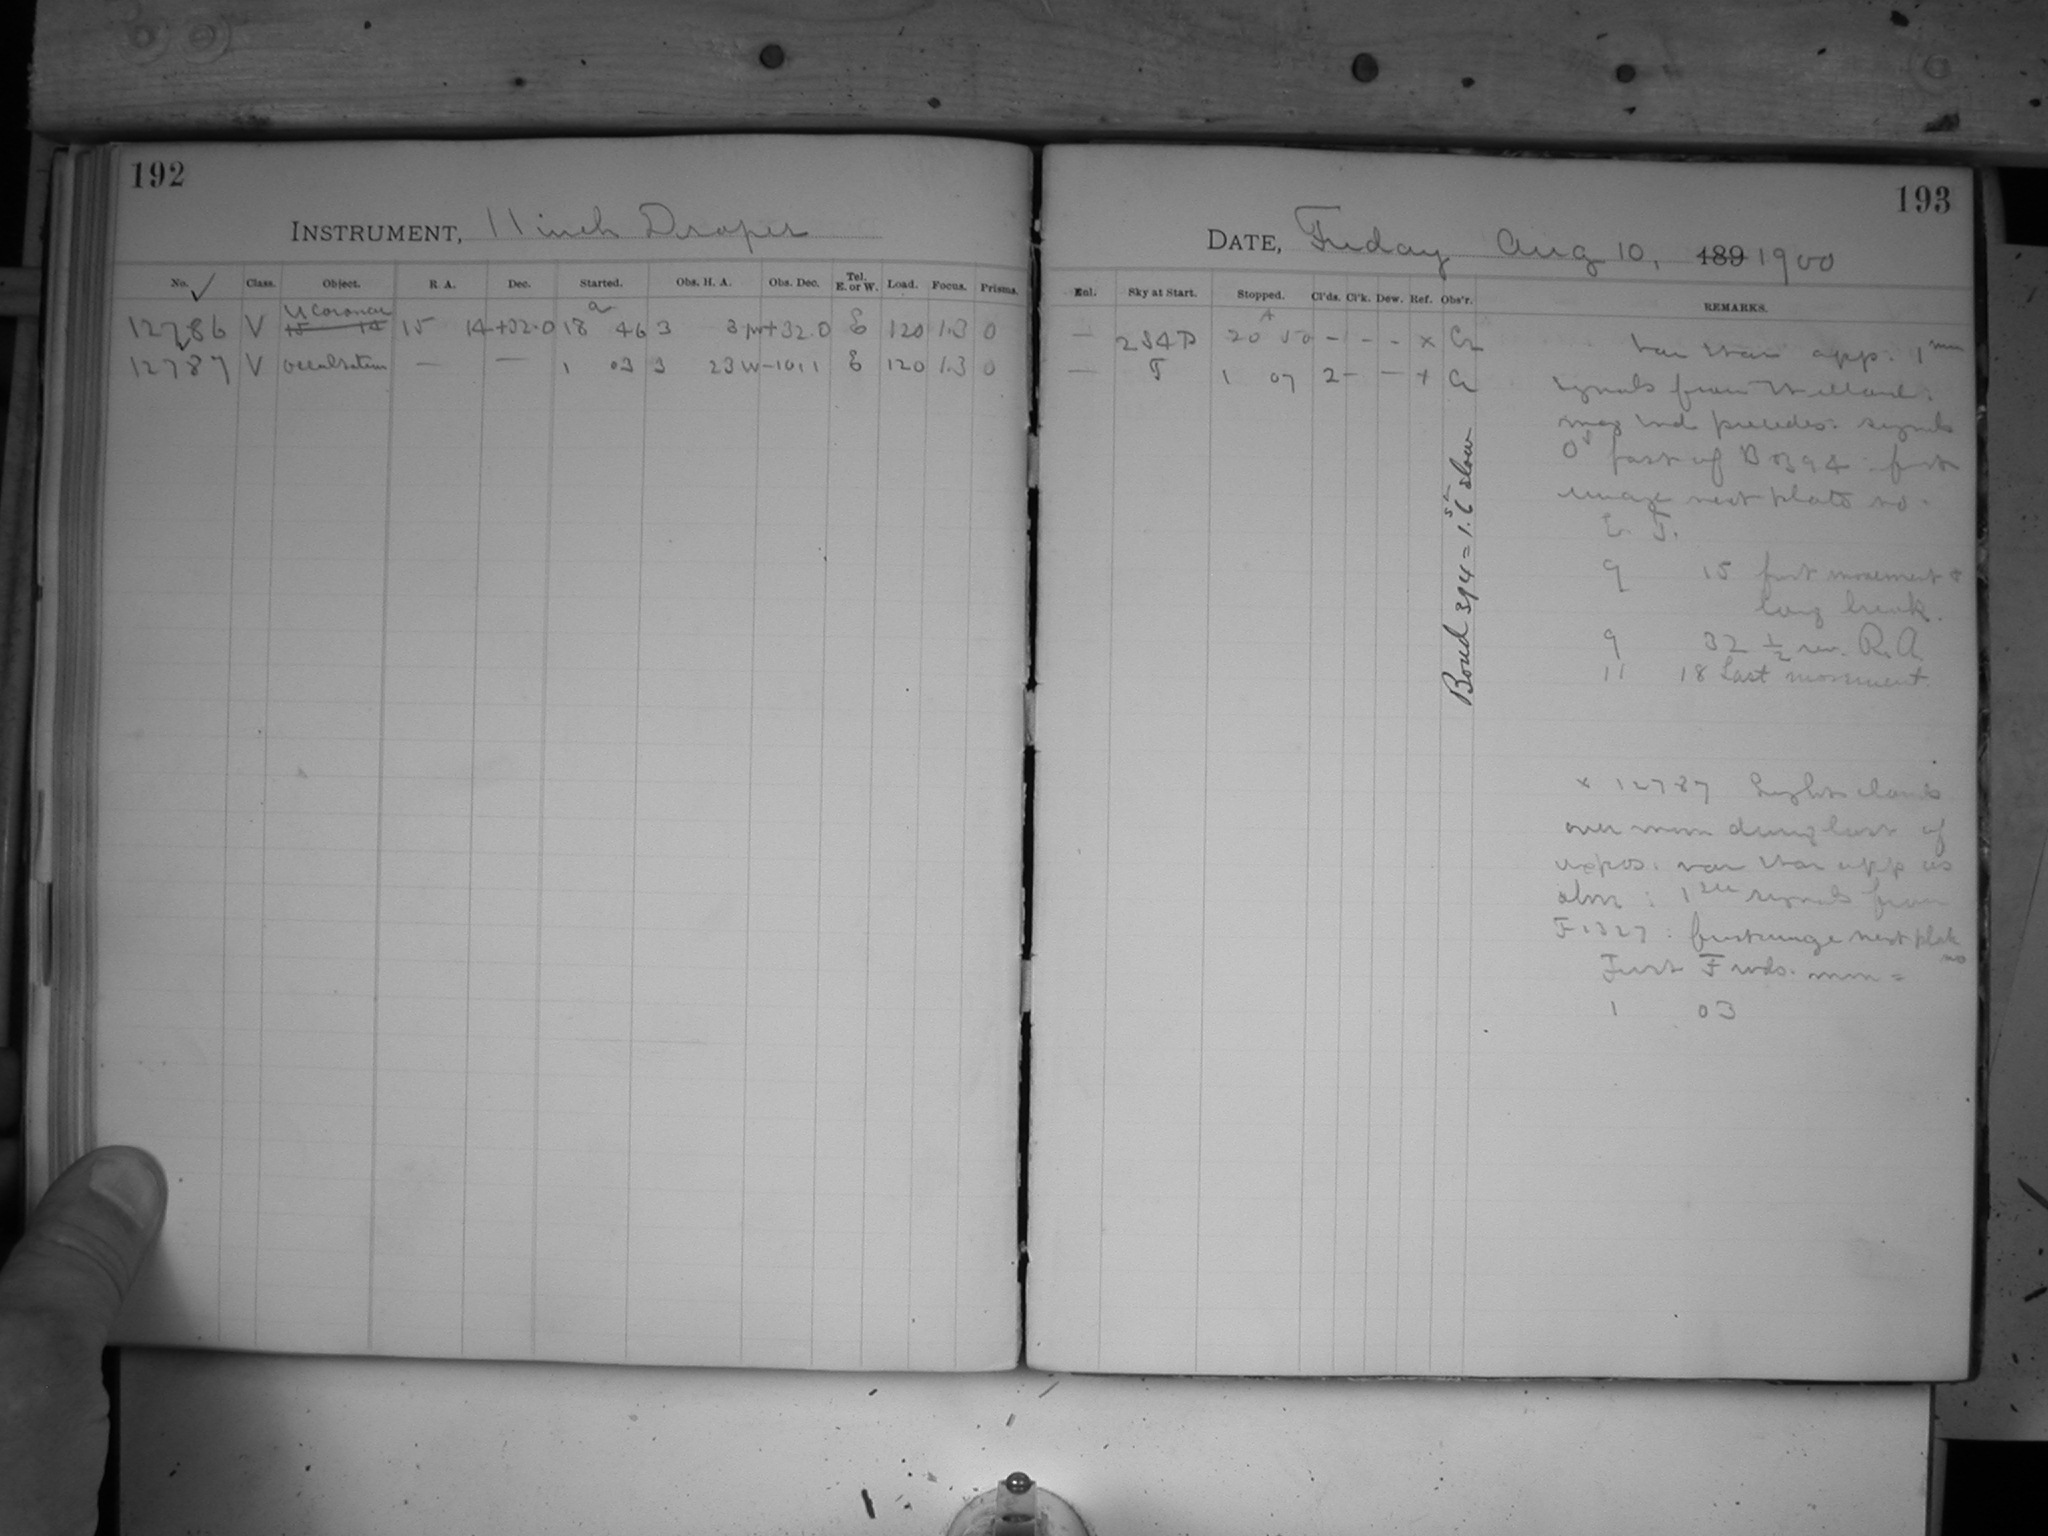 192
INSTRUMENT, 11 inch Draper
No. ✓ Class. Object. R. A. Dec. Started. Obs. H. A. Obs. Dec. Tel. E. or W. Load. Focus. Prisms.
12786 V U Coronae 15 14 15 14 +32.0 18 46 3 3 W +32.0 E 120 1.3 0
12787 V occultation — — 1 03 3 23 W -10.1 E 120 1.3 0
193
DATE, Friday Aug 10, 189 1900
Enl. Sky at Start. Stopped. Cl'ds. Cl'k. Dew. Ref. Obs'r. REMARKS.
— 2 S4P 20 50 - - - x
— 1 07 2 - - x
Bond 394 = 1.6 slow
var star app. 1 min
signals from Willard.
precedes signals
0s fast of B 394 first
image next plate no.
E. T.
9 15 first movement &
long break.
9 32 ½ rev. R.A.
11 18 Last movement.
x 12787 Light clouds
over moon during last of
expos. var star app as
above : signals from
F 1327 : first image next plate no
First F mdn. mm =
1 03